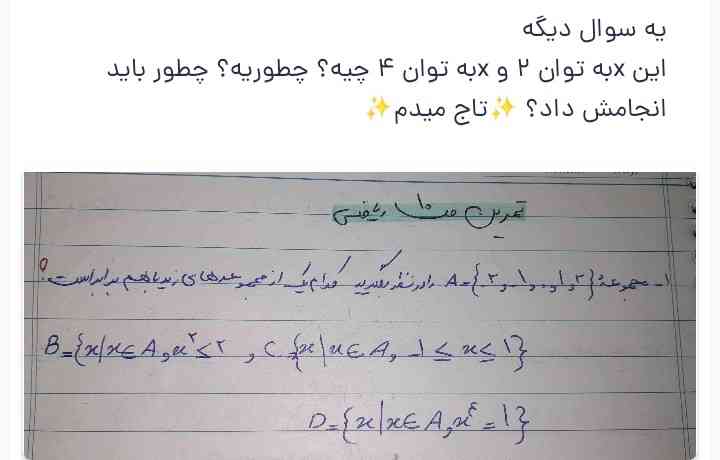 یه سوال دیگه
این xبه توان ۲ و xبه توان ۴ چیه؟ چطوریه؟ چطور باید
انجامش داد؟ ✨تاج میدم✨
تمرین ۱۰ ریاضی
۱- مجموعهٔ A={-۲,-۱,۰,۱,۲} را در نظر بگیرید کدام یک از مجموعه‌های زیر با هم برابر است؟
B={x|x∈A, x²≤۲ , C={x|x∈A, -۱≤x≤۱}
D={x|x∈A, x⁴=۱}